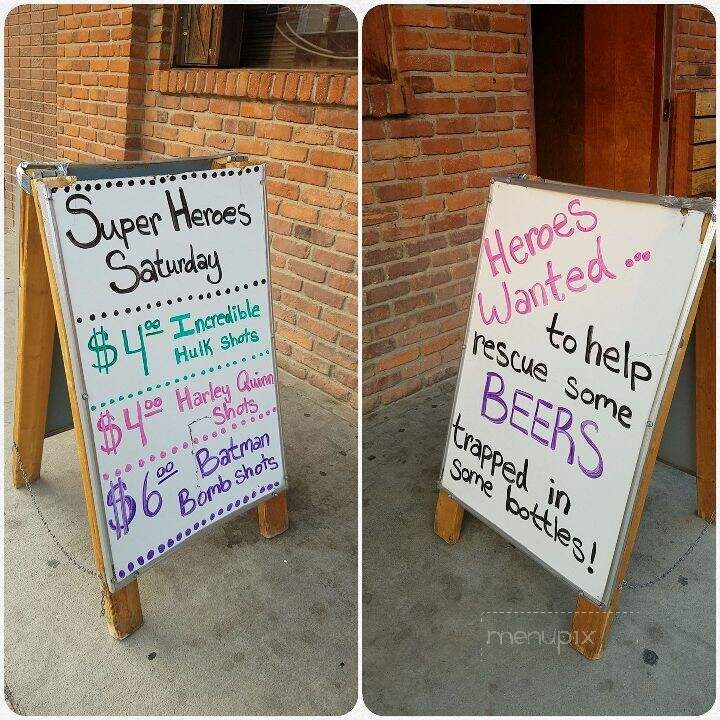 Super Heroes
Saturday
$4.00 Incredible
Hulk Shots
$4.00 Harley Quinn
Shots
$6.00 Batman
Bomb shots
Heroes
Wanted...
to help
rescue some
BEERS
trapped in
some bottles!
menupix